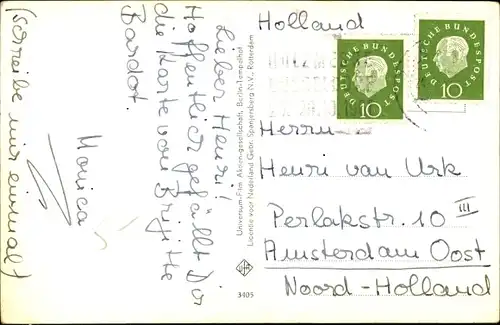 Lieber Henri!
Hoffentlich gefällt Dir
die Karte von Brigitte
Bardot.
Monica
(schreibe mir einmal)
Universum-Film Aktien-gesellschaft, Berlin-Tempelhof
Licentie voor Nederland Gebr. Spanjersberg N.V., Rotterdam
UFA
3405
DEUTSCHE BUNDESPOST
10
DEUTSCHE BUNDESPOST
10
Holland
Herrn
Henri van Urk
Perlakstr. 10 III
Amsterdam Oost
Noord-Holland